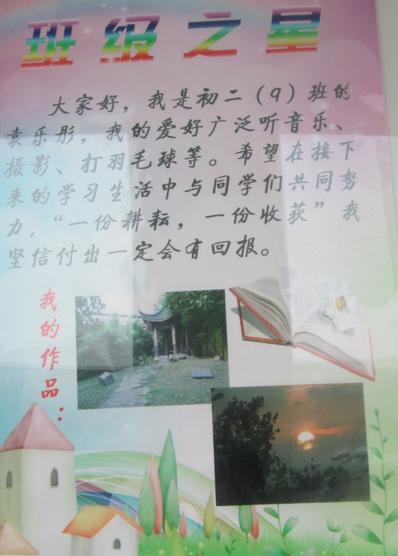 班级之星
大家好，我是初二（9）班的
袁乐彤，我的爱好广泛听音乐、
摄影、打羽毛球等。希望在接下
来的学习生活中与同学们共同努
力，“一份耕耘，一份收获”我
坚信付出一定会有回报。
我的作品：